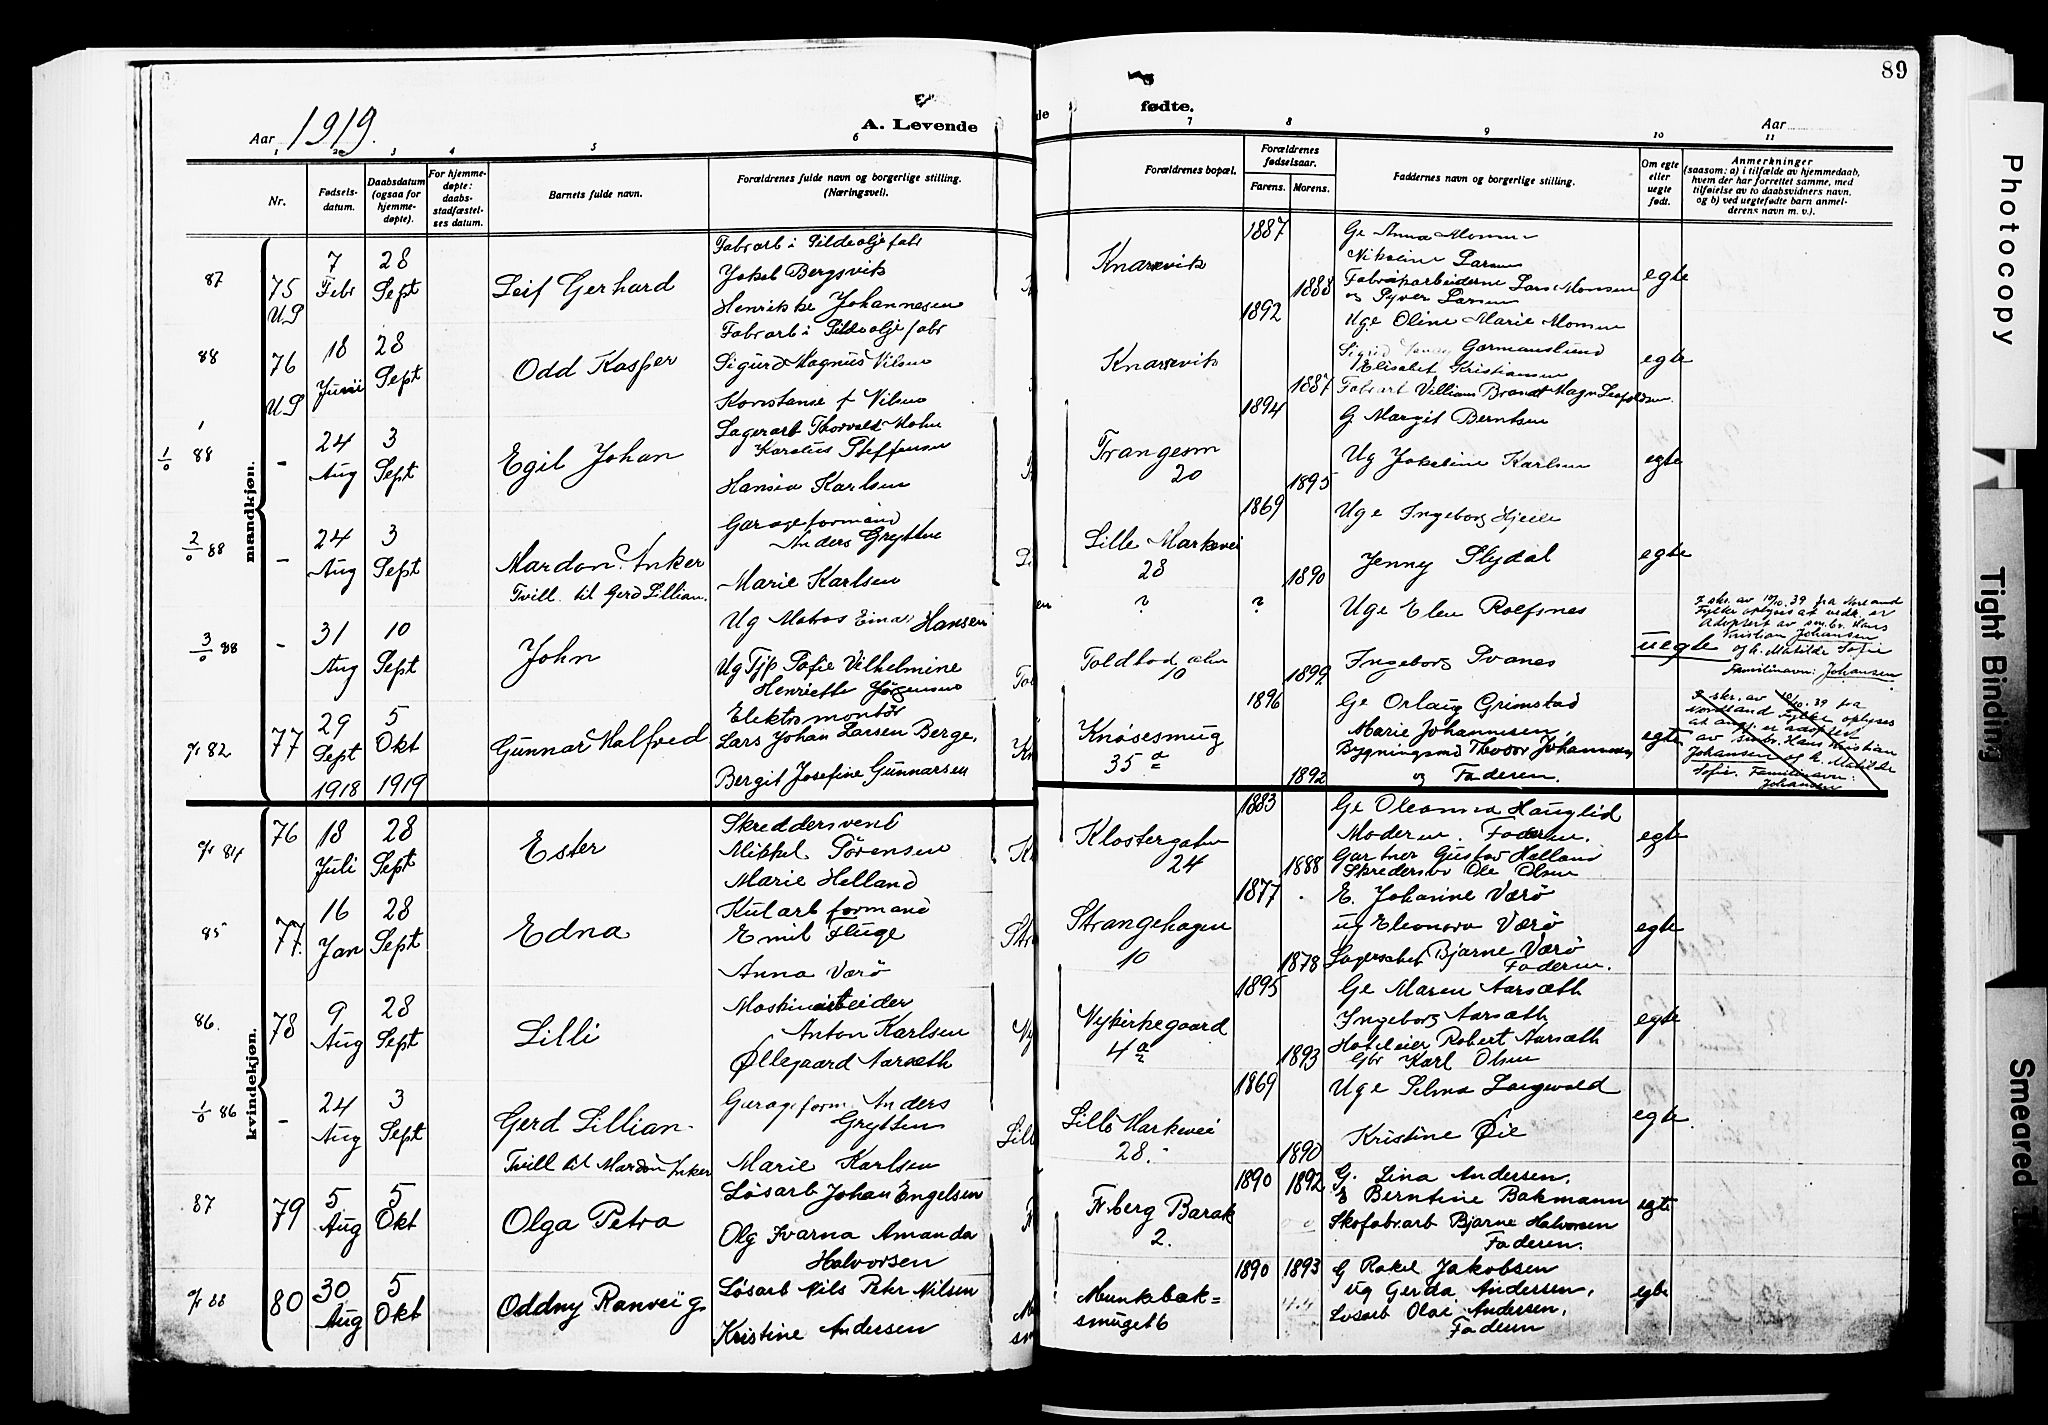 89
Aar 1919.
A. Levende
fødte.
Aar
1
2
3
4
5
6
7
8
9
10
11
Nr.
Fødsels-
datum.
Daabsdatum
(ogsaa for
hjemme-
døpte).
For hjemme-
døpte:
daabs-
stadfæstel-
ses datum.
Barnets fulde navn.
Forældrenes fulde navn og borgerlige stilling.
(Næringsvei).
Forældrenes bopæl.
Forældrenes
fødselsaar.
Farens. Morens.
Faddernes navn og borgerlige stilling.
Om egte
eller
uegte
født.
Anmerkninger
(saasom: a) i tilfælde av hjemmedaab,
hvem der har forrettet samme, med
tilføielse av to daabsvidners navn,
og b) ved uegtefødte barn anmel-
derens navn m. v.).
mandkjøn.
87
75
U.S
7
Febr
28
Sept
Leif Gerhard
Fabrarb i Sildeoljefabr
Jakob Bergsvik
Henrikke Johannesen
Knarrevik
1887
1888
Ge Anna Monsen
Nikoline Larsen
Fabrikarbeiderne Lars Monsen
og Syver Larsen
egte
88
76
U.S
18
Juni
28
Sept
Odd Kasper
Fabrarb i Sildeoljefabr
Sigurd Magnus Nilsen
Konstanse f Nilsen
Knarrevik
1892
1887
Uge Oline Marie Monsen
Sigrid Garmanslund
Elisabet Kristiansen
Fabrarb Villiam Brandt Magn Leopoldsen
egte
1/0 88
-
24
Aug
3
Sept
Egil Johan
Lagerarb Thorvald Mohn
Karelius Steffensen
Hansia Karlsen
Trangesm
20
1894
1895
G. Margit Berntsen
Ug Jakobine Karlsen
egte
2/0 88
-
24
Aug
3
Sept
Mardon Anker
Tvill. til Gerd Lillian.
Garageformand
Anders Grytten
Marie Karlsen
Lille Markevei
28
1869
1890
Uge Ingeborg Hjelle
Jenny Slydal
egte
3/0 88
-
31
Aug
10
Sept
John
Ug Matros Einar Hansen
Ug Tjp Sofie Vilhelmine
Henriette Jørgensen
?
Toldbod alm
10
?
1899
Uge Elen Rolfsnes
Ingeborg Svanes
uegte
skr. av 19/10.39 fra Nordland
Fylke oplyses at vedk. er
adoptert av sm.br. Hans
Kristian Johansen
og h. Matilde Sofie
Familienavn: Johansen.
82
77
29
Sept
1918
5
Okt
1919
Gunnar Halfred
Elektromontør
Lars Johan Larsen Berge.
Bergit Josefine Gunnarsen
Knøsesmug
35 a
1896
1892
Ge Orlaug Grimstad
Marie Johannesen,
Bygningssnd Theodor Johannesen
og Faderen.
egte
skr. av 19/10.39 fra
Nordland Fylke oplyses
at ang. er adoptert
av sm.br. Hans Kristian
Johansen og h. Matilde
Sofie. Familienavn:
Johansen
kvindekjøn.
84
76
18
Juli
28
Sept
Ester
Skreddersvend
Mikkel Sørensen
Marie Helland
Klostergaten
24
1883
1888
Ge Oleanna Hauglid
Moderen. Faderen.
Gartner Gustav Helland
Skredersv Ole Olsen
egte
85
77.
16
Jan
28
Sept
Edna
Kularb formand
Emil Fluge
Anna Værø
Strangehagen
10
1877
1878
E. Johanne Værø
ug Eleonora Værø
Lagerarb Bjarne Værø
Faderen.
egte
86.
78
9
Aug
28
Sept
Lilli
Maskinarbeider
Anton Karlsen
Øllegaard Aarsæth
Nykirkegaard
4 a
1895
1893
Ge Maren Aarsæth
Ingeborg Aarsæth
Hoteleier Robert Aarsæth
Gbr Karl Olsen
egte
1/0 86
-
24
Aug
3
Sept
Gerd Lillian.
Tvill til Mardon Anker
Garageform. Anders
Grytten
Marie Karlsen
Lille Markevei
28.
1869
1890
Uge Selma Langvald
Kristine Øie
egte.
87
79
5
Aug
5
Okt
Olga Petra
Løsarb Johan Engelsen
Olg Ivarna Amanda
Halvorsen
Frberg Barak
2.
1890 1892
G. Lina Andersen,
E Berntine Bakmann
Skofabrarb Bjarne Halvorsen
Faderen.
egte
88
80
30
Aug
5
Okt
Oddny Ranveig
Løsarb Nils Petr Nilsen
Kristine Andersen
Munkebæk-
smuget 6
1890 1893
G Rakel Jakobsen
ug Gerda Andersen,
Løsarb Olai Andersen,
Faderen
egte
Photocopy
Tight Binding
Smeared